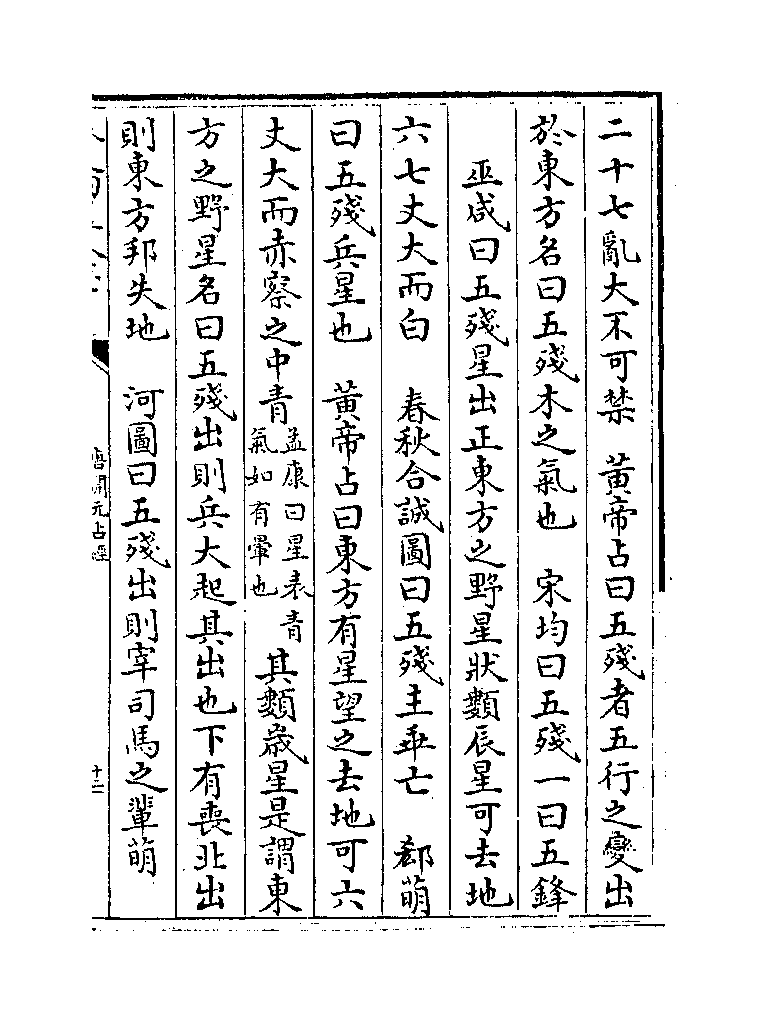 二十七亂大不可禁　黃帝占曰五殘者五行之變出
於東方名曰五殘木之氣也　宋均曰五殘一曰五鋒
巫咸曰五殘星出正東方之野星狀類辰星可去地
六七丈大而白　春秋合誠圖曰五殘主乖亡　郗萌
曰五殘兵星也　黃帝占曰東方有星望之去地可六
丈大而赤察之中青孟康曰星表青氣如有暈也其類歲星是謂東
方之野星名曰五殘出則兵大起其出也下有喪北出
則東方邦失地　河圖曰五殘出則宰司馬之輩萌
唐開元占經
十二